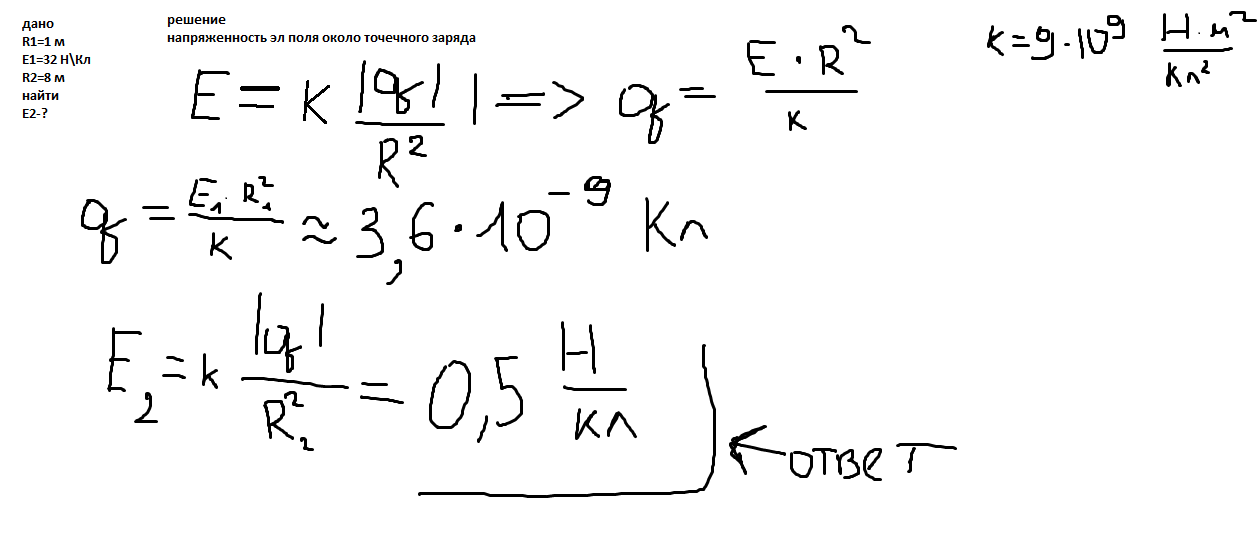 дано
R1=1 м
E1=32 Н\Кл
R2=8 м
найти
E2-?
решение
напряженность эл поля около точечного заряда
E = k |q| / R² | => q = E · R² / k
k = 9 · 10⁹ Н · м² / Кл²
q = E₁ · R₁² / k ≈ 3,6 · 10⁻⁹ Кл
E₂ = k |q| / R₂² = 0,5 Н / Кл
ответ